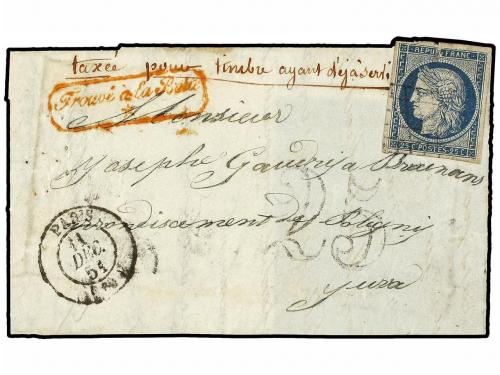 taxée pour timbre ayant déjà servi
REPUB FRANC
Trouvé à la Boite
A Monsieur
25 C POSTES 25 C
Josephe Gaudri à Brainans
arrondisement de Poligny
25
Jura
PARIS
11
DEC.
51